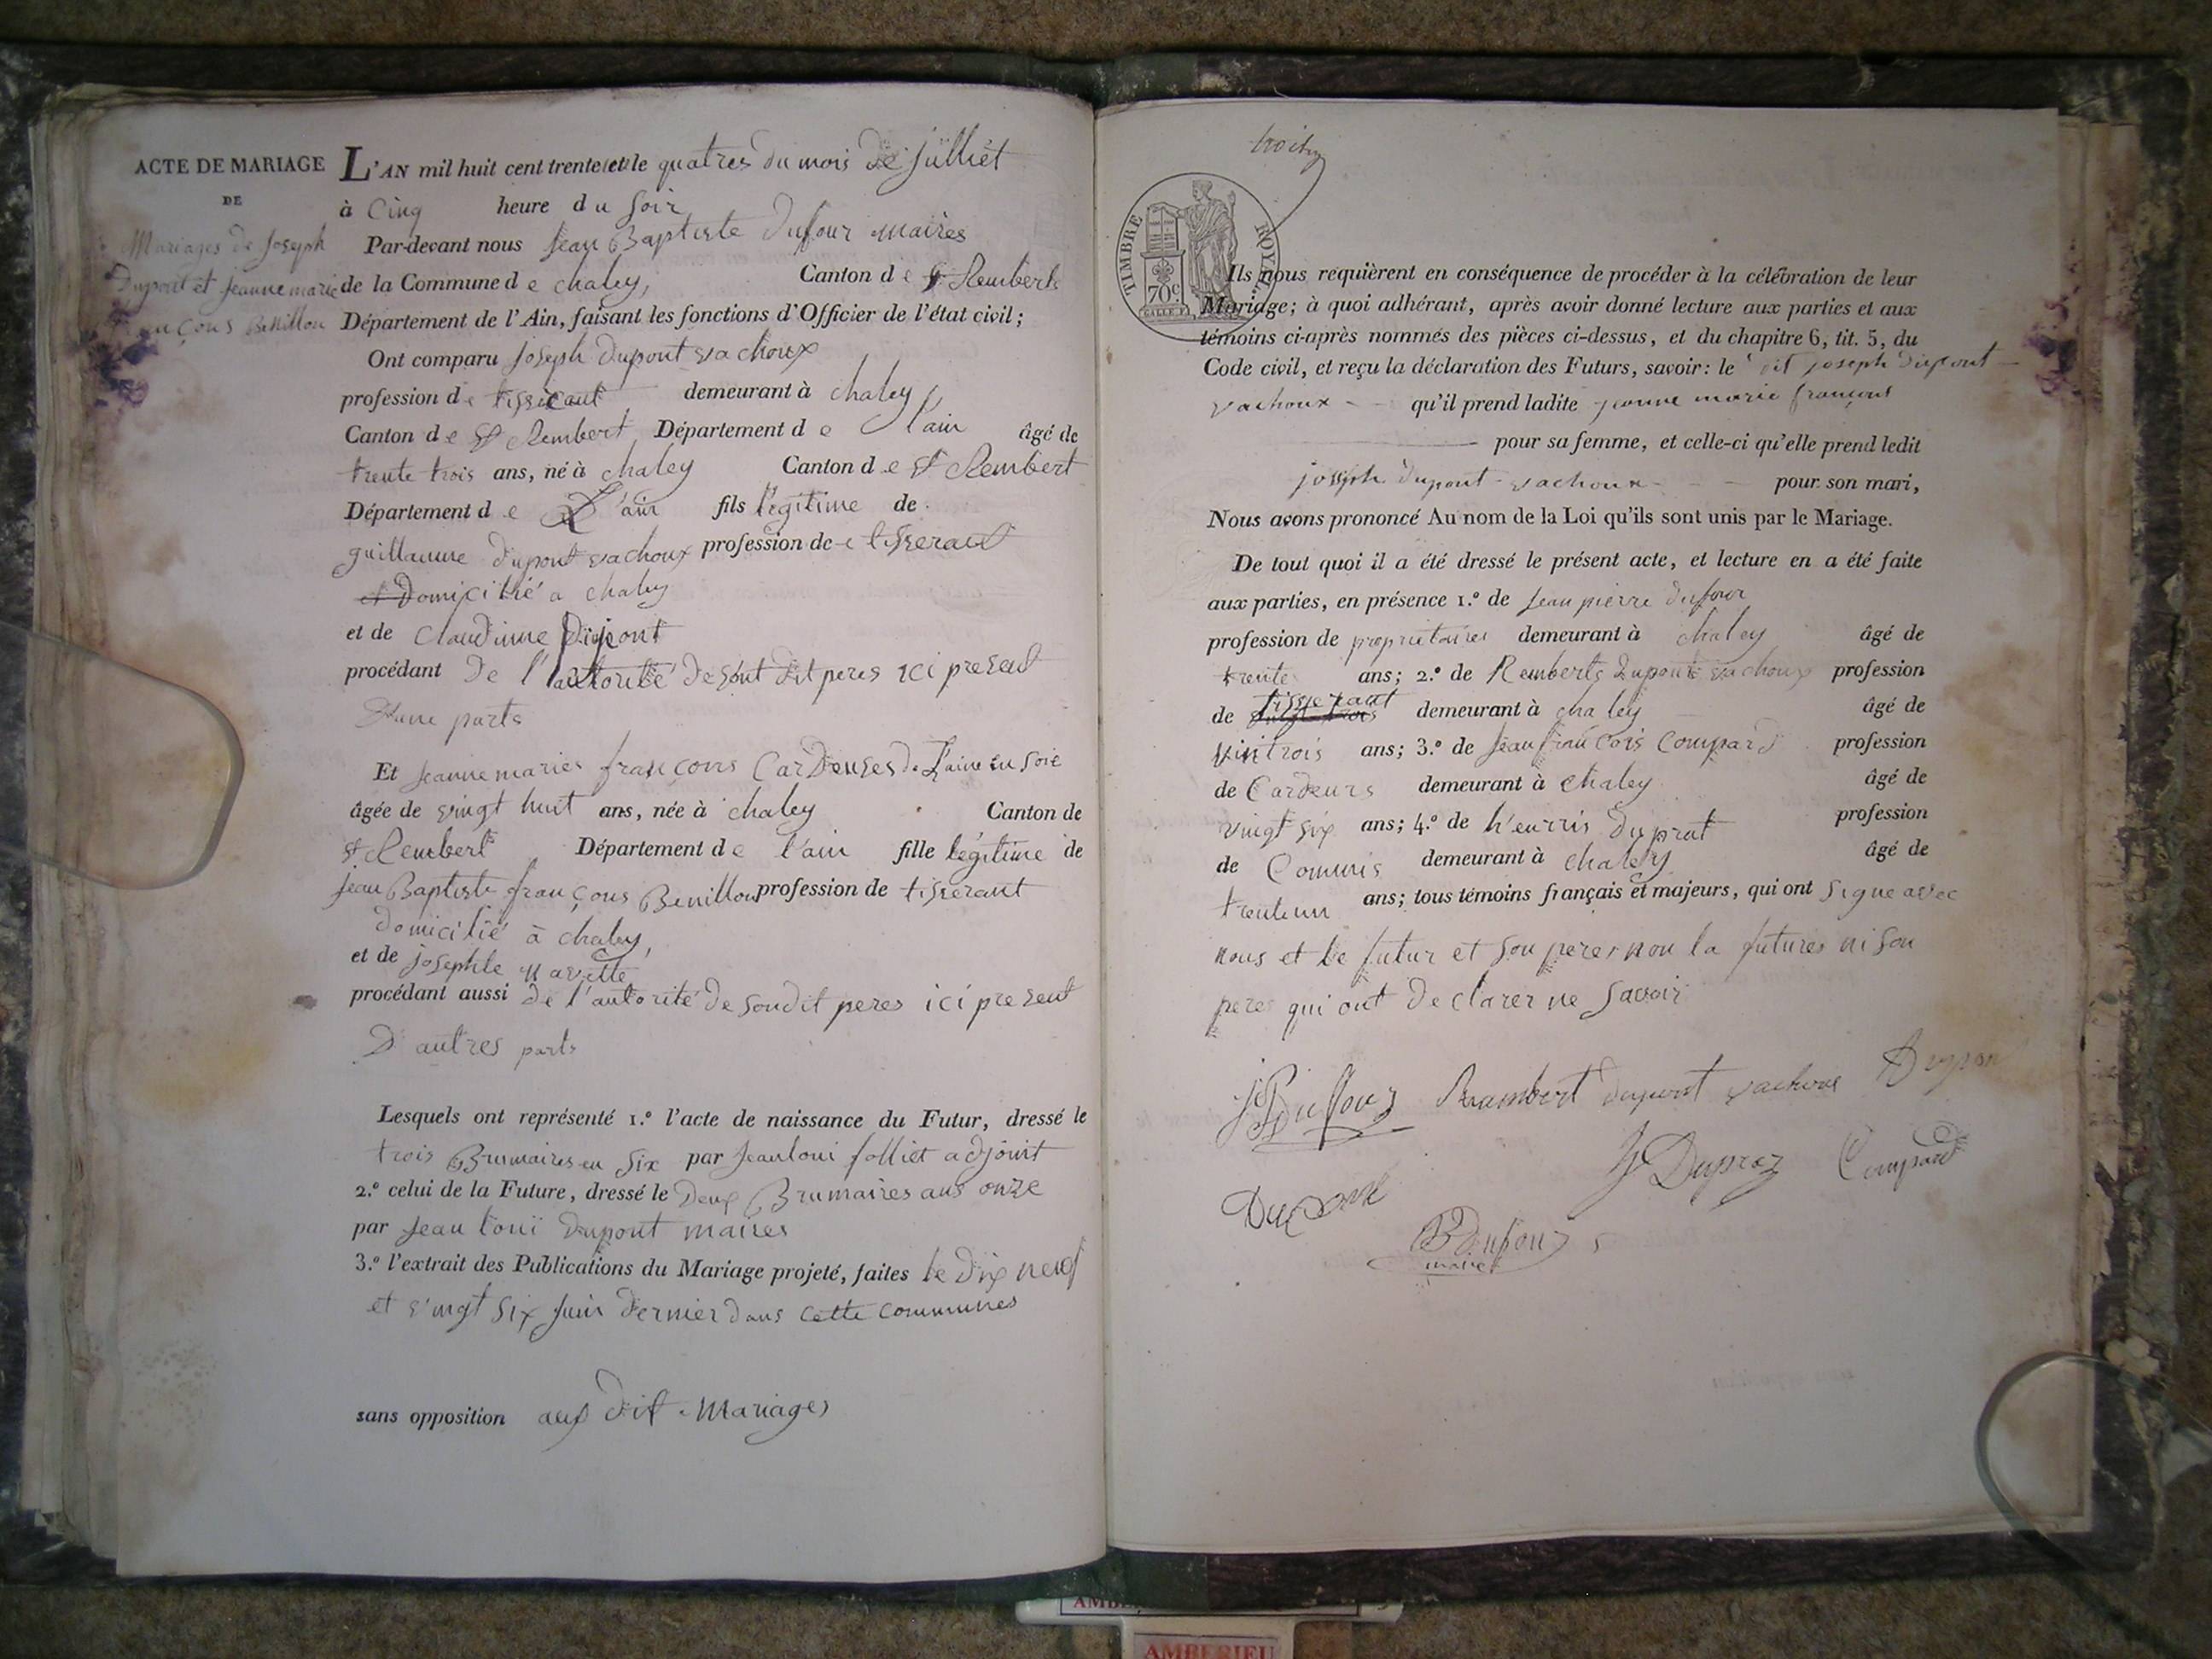 ACTE DE MARIAGE
DE
Mariages de Joseph
Dupont et Jeanne marie
françons Benillon
L'AN mil huit cent trente et le quatres du mois de Julliet
à Cinq heure du Soir
Par-devant nous Jean Baptiste Dufour maires
de la Commune de chaley, Canton de St Remberts
Département de l'Ain, faisant les fonctions d'Officier de l'état civil;
Ont comparu joseph Dupont vachoux
profession de tisserant demeurant à chaley
Canton de St Rembert Département de l'ain âgé de
trente trois ans, né à chaley Canton de St Rembert
Département de L'ain fils légitime de
guillaume Dupont vachoux profession de tisserant
et Domicilié a chaley
et de Claudinne Dupont
procédant De l'autorité de sont dit peres ici present
D'une parts
Et Jeanne maries françons Cardeuses de Laine en soie
âgée de vingt huit ans, née à chaley Canton de
St Rembert Département de l'ain fille légitime de
jean Baptiste françons Benillon profession de tisserant
domicilié à chaley,
et de josephte navette
procédant aussi de l'autorité de soudit peres ici present
D'autres parts
Lesquels ont représenté 1.º l'acte de naissance du Futur, dressé le
trois Brumaires en six par Jean loui folliet adjoint
2.º celui de la Future, dressé le Deux Brumaires ans onze
par Jean loui Dupont maires
3.º l'extrait des Publications du Mariage projeté, faites le dix neuf
et vingt six juin dernier dans cette communes
sans opposition aux dit Mariages
TIMBRE ROYAL
70c
Ils nous requièrent en conséquence de procéder à la célébration de leur
Mariage; à quoi adhérant, après avoir donné lecture aux parties et aux
témoins ci-après nommés des pièces ci-dessus, et du chapitre 6, tit. 5, du
Code civil, et reçu la déclaration des Futurs, savoir: le dit joseph Dupont
vachoux qu'il prend ladite jeanne marie françons
pour sa femme, et celle-ci qu'elle prend ledit
joseph Dupont vachoux pour son mari,
Nous avons prononcé Au nom de la Loi qu'ils sont unis par le Mariage.
De tout quoi il a été dressé le présent acte, et lecture en a été faite
aux parties, en présence 1.º de Jean pierre Dufour
profession de propriétaires demeurant à chaley âgé de
trente ans; 2.º de Remberts Dupont vachoux profession
de tisserant demeurant à chaley âgé de
vintrois ans; 3.º de Jean françois Compard profession
de Cardeurs demeurant à chaley âgé de
vingt six ans; 4.º de h'enrris Duprat profession
de Commis demeurant à chaley âgé de
trenteun ans; tous témoins français et majeurs, qui ont signe avec
nous et le futur et son peres non la futures ni son
peres qui ont declarer ne savoir
JP Dufour Rambert dupont vachoux Dupon
H Dupraz Compard
Dupont
B Dufour
maire
AMBERIEU